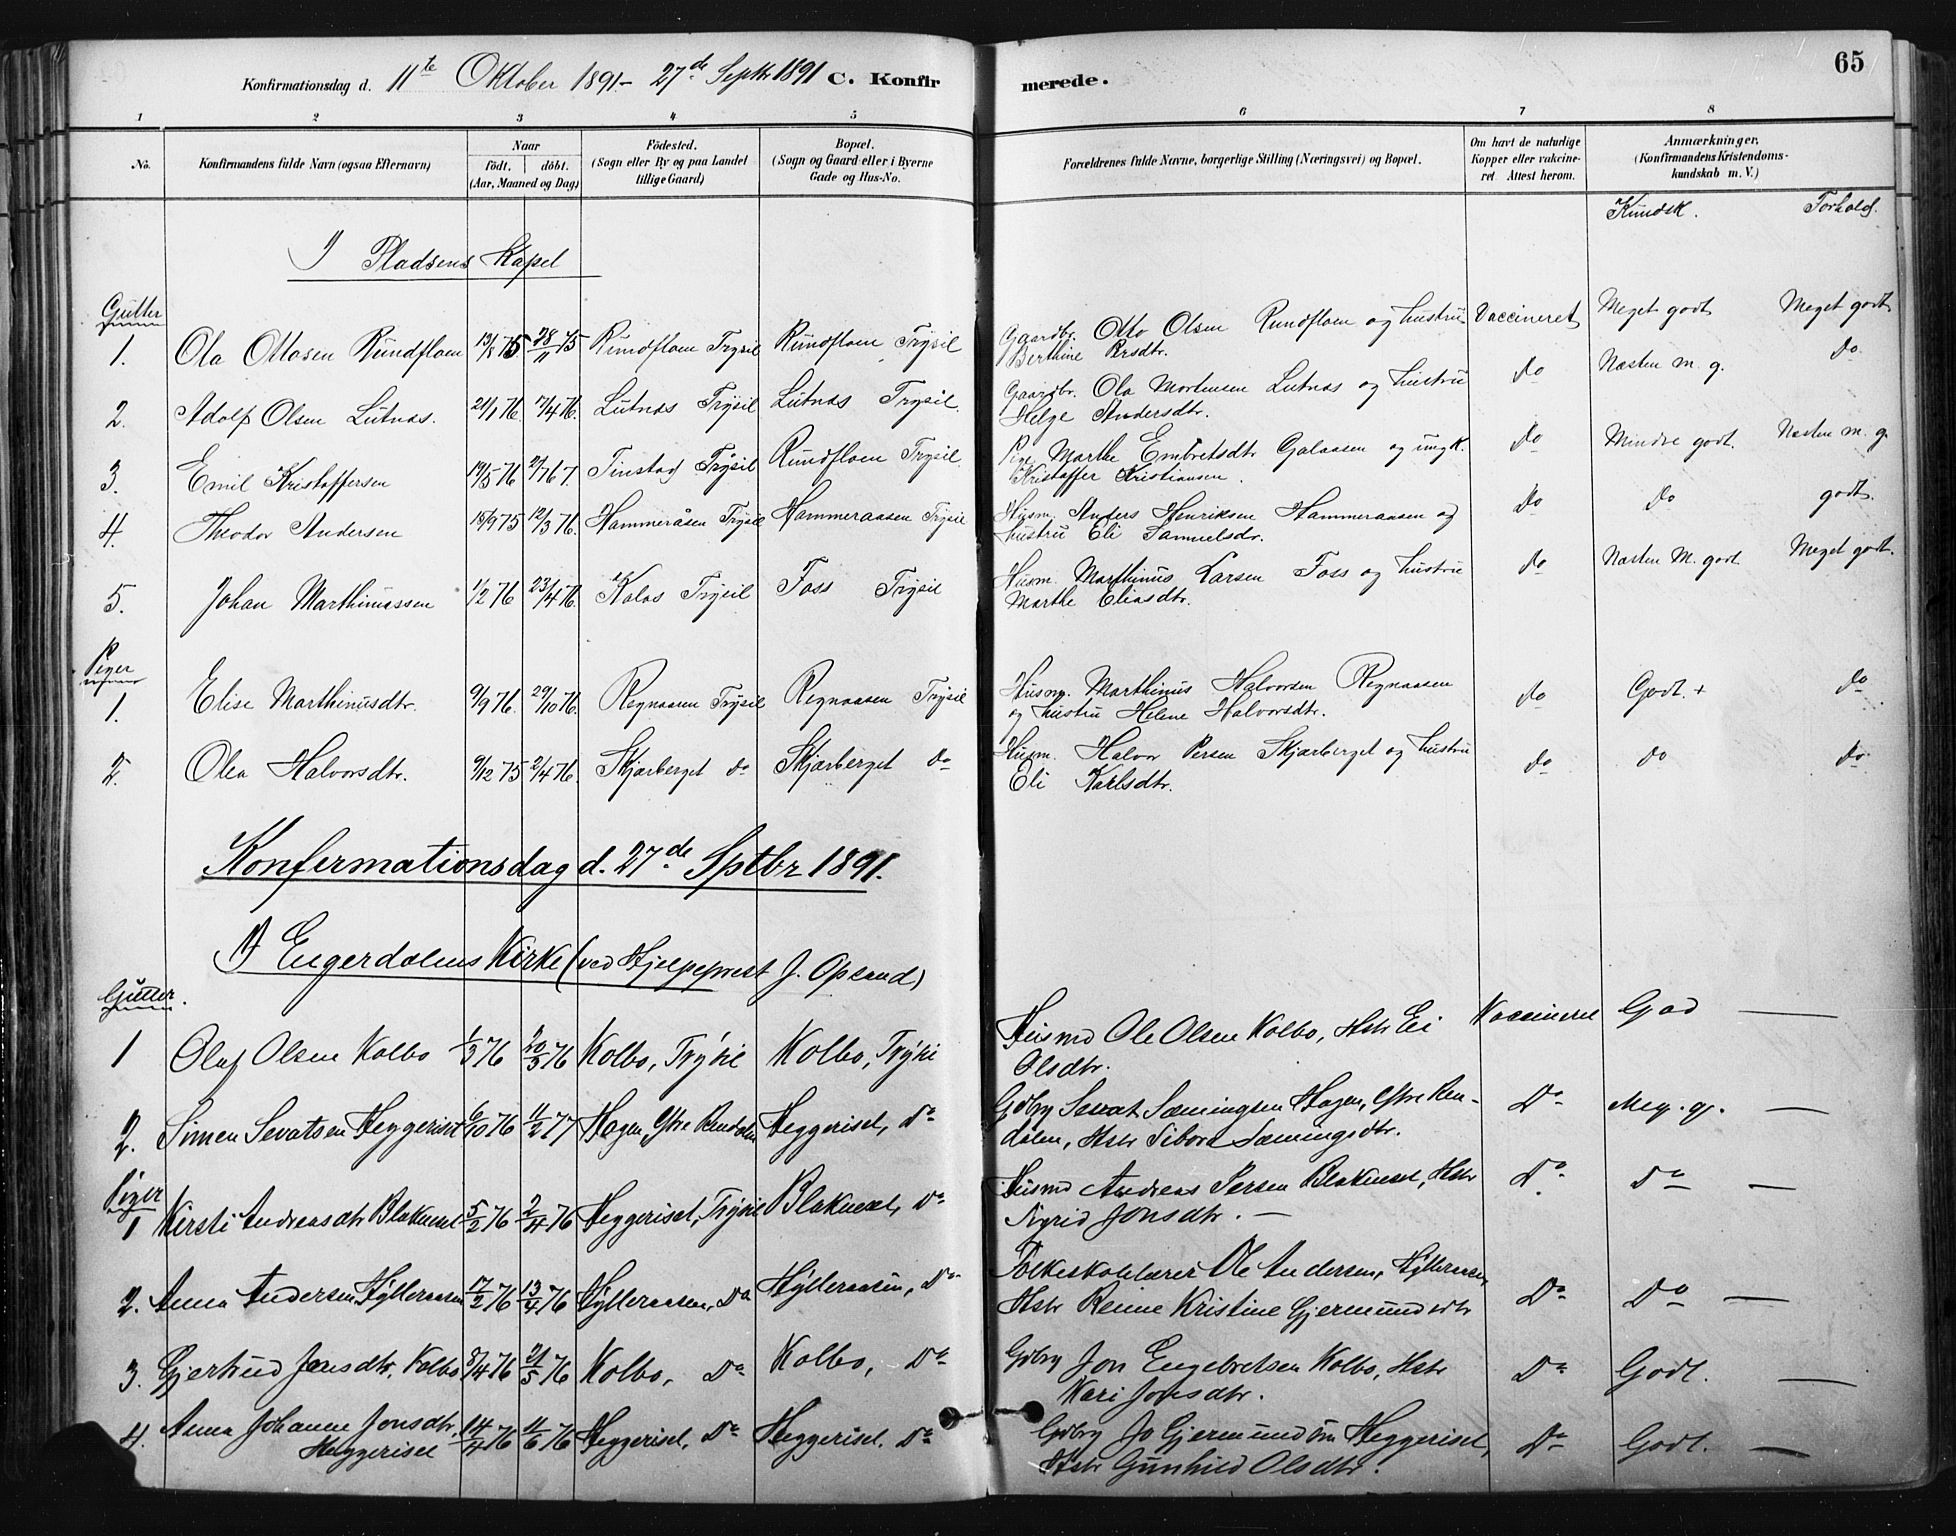 65
Konfirmationsdag d. 11te Oktober 1891 - 27de Septbr 1891 C. Konfirmerede.
1 2 3 4 5 6 7 8
No. Konfirmandens fulde Navn (ogsaa Efternavn) Naar født. døbt. (Aar, Maaned og Dag) Födested. (Sogn eller By og paa Landet tillige Gaard) Bopæl. (Sogn og Gaard eller i Byerne Gade og Hus-No. Forældrenes fulde Navne, borgerlige Stilling (Næringsvei) og Bopæl. Om havt de naturlige Kopper eller vakcineret. Attest herom. Anmærkninger. (Konfirmandens Kristendomskundskab m. V.)
Kundsk. Forhold.
I Pladsens Kapel
Gutter
1. Ola Ottosen Rundfloen 13/8 75 28/11 75 Rundfloen Trysil Rundfloen Trysil Gaardbr. Otto Olsen Rundfloen og hustru Vaccineret Meget godt Meget godt
Berthine Persdtr.
2. Adolf Olsen Lutnæs. 21/1 76. 17/4 76. Lutnæs Trysil Lutnæs Trysil. Gaardbr. Ola Mortensen Lutnæs og hustru Do Næsten m. g. Do
Helge Andersdtr.
3. Emil Kristoffersen 19/5 76 2/7 67. Tinstad Trysil Rundfloen Trysil Pige Marthe Embretsdtr Galaasen og ungk. Do Mindre godt. Næsten m. g.
Kristoffer Kristiansen.
4. Theodor Andersen 15/9 75 12/3 76. Hammeråsen Trysil Hammeraasen Trysil Husm. Anders Henriksen Hammeraasen og Do Do godt.
hustru Eli Samuelsdr.
5. Johan Marthinussen 1/2 76 23/4 76. Kolos Trysil Foss Trysil Husm. Marthinus Larsen Foss og hustru Do Næsten M. godt Meget godt.
Marthe Eliasdtr.
Piger
1. Elise Marthinusdtr. 9/9 76. 29/10 76. Regnaasen Trysil Regnaasen Trysil Husm. Marthinus Halvorsen Regnaasen Do Godt. + Do
og hustru Helene Halvorsdtr.
2. Olea Halvorsdtr. 9/12 75 2/4 76. Skjærberget do Skjærberget Do Husm. Halvor Persen Skjærberget og hustru Do Do Do
Eli Karlsdtr.
Konfermationsdag d. 27de Sptbr 1891.
I Engerdalens Kirke (ved Hjelpeprest J. Opsand)
Gutter.
1 Olaf Olsen Kolbo 1/3 76 20/3 76 Kolbo, Trysil Kolbo, Trysil Husmd Ole Olsen Kolbo, Hstr Eli Vaccineret God —
Olsdtr.
2. Simen Sevatsen Heggeriset 6/10 76 11/2 77 Hagen Ytre Rendalen Heggeriset, Do Gdbrg Sevat Sæmingsen Hagen, Ytre Ren- Do Meg. g. —
dalen, Hstr Sibora Sæmingsdtr.
Piger
1 Kirsti Andreasdtr Blakuset 5/2 76 2/4 76 Heggeriset, Trysil Blakuset, Do Husmd Andreas Persen Blakuset, Hstr Do Do —
Sigrid Jonsdtr. —
2. Anna Andersen Hylleraasen 17/2 76 13/4 76 Hylleraasen, Do Hylleraasen, Do Folkeskolelærer Ole Andersen, Hylleraasen Do Do —
Hstr Renne Kristine Gjermundsdtr
3. Gjertrud Jonsdtr. Kolbo 8/4 76 21/5 76 Kolbo, Do Kolbo, Do Gdbrg Jon Engebretsen Kolbo, Hstr Do Godt. —
Kari Jonsdtr.
4. Anna Johanne Jonsdtr. 14/4 76 11/6 76 Heggeriset, Do Heggeriset. Do Gdbrg Jo Gjermundsen Heggeriset, Do Godt. —
Heggeriset Hstr Gunhild Olsdtr.